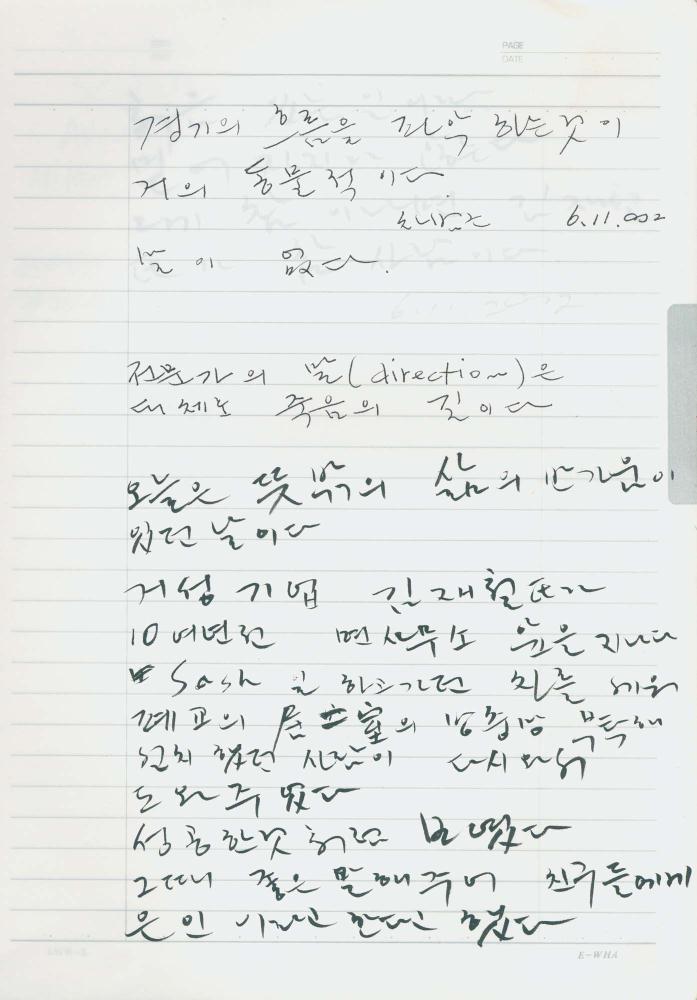 PAGE
DATE
경기의 흐름을 파악 하는것이
거의 동물적 이다.
6.11.002
말이 없다.
전문가의 말(direction)은
대체로 죽음의 길이다
오늘은 뜻밖의 삶의 반가운이
있던 날이다
거성 기법 김재철氏가
10여년전 면사무소 앞을 지나다
Sash 일 하고가던 차를 세워
폐교의 居士室의 방충망 부탁해
설치 했던 사람이 다시와서
도와주었다
성공한것처럼 보였다
그때 좋은 말해주어 친구들에게
은인 이라고 한다고 했다
E-WHA